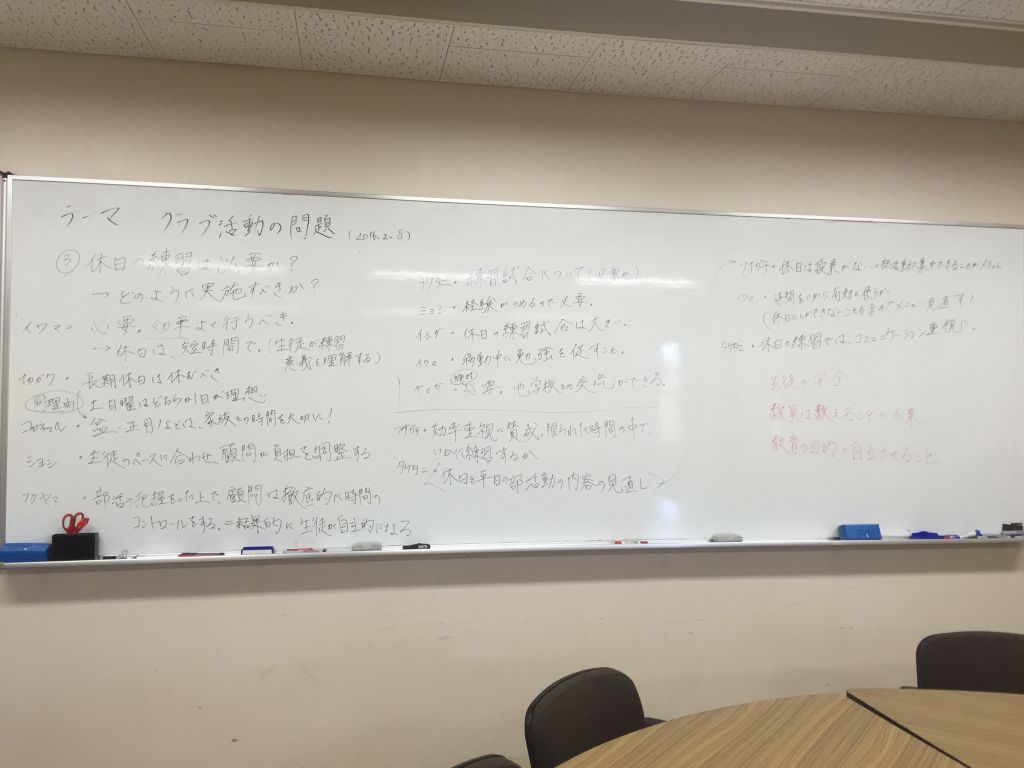 テーマ クラブ活動の問題 (2016.2.8)
③ 休日の練習は必要か?
→ どのように実施すべきか?
イワマ・必要。効率よく行うべき。
→ 休日は、短時間で。(生徒が練習
意義を理解する)
・長期休日は休むべき
同理由 土日曜はどちらか1日が理想。
・盆・正月などは、家族との時間を大切に!
ミヨシ ・生徒のペースに合わせ、顧問が負担を調整する
フクヤマ ・部活の把握をした上で、顧問は徹底的に時間の
コントロールをする。=結果的に生徒が自主的になる
・練習試合について(必要か)
ミヨシ・経験がつめるので必要。
イシダ・休日の練習試合は大会。
イワマ・移動中に勉強を促すこと。
ヤマダ・絶対必要。他学校との交流ができる。
・効率重視に賛成。限られた時間の中で、
いかに練習するか
・休日と平日の部活動の内容の見直し
・休日は授業がない=部活動に集中できることがメリット
・時間をいかに有効に使うか
(休日にしかできないことも含めてメニュー見直す)
・休日の練習では、コミュニケーション重視に。
生徒の安全
教員は教えることが本来
教育の目的・自立させること